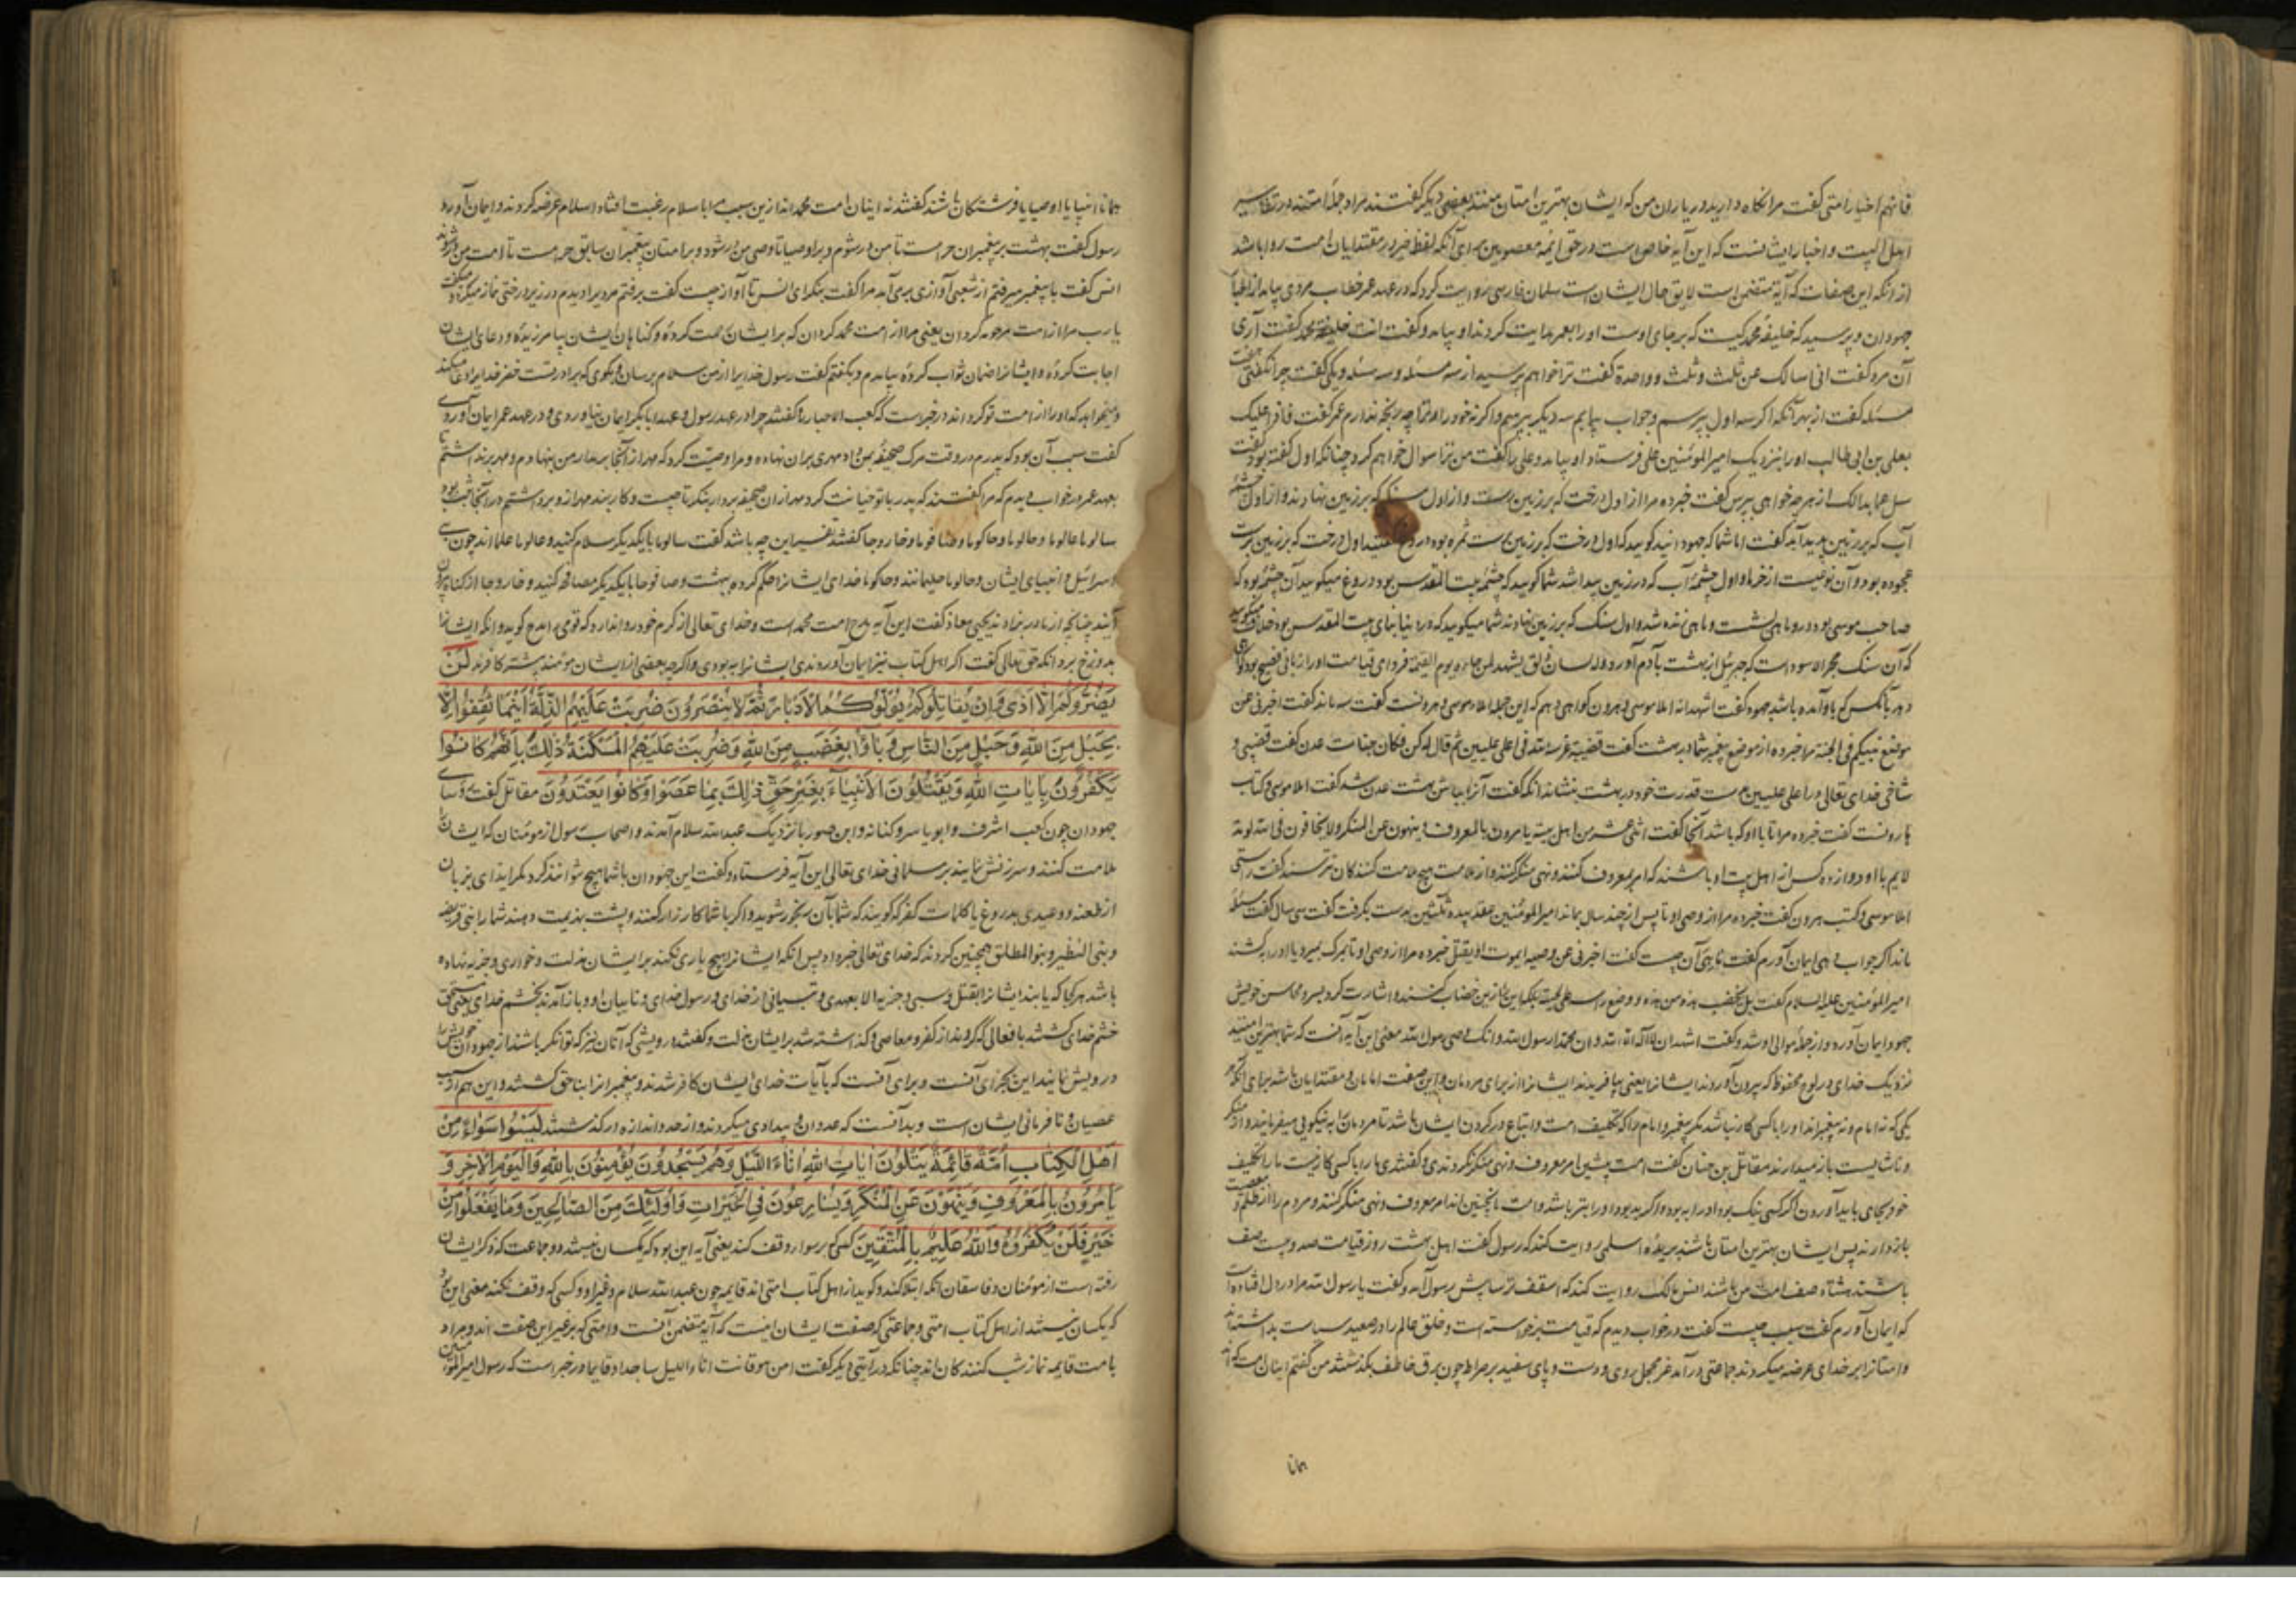 فانهم اخیار امتی گفت مرا نگاه دارید در یاران من که ایشان بهترین امتان منند بعضی دیگر گفتند مراد جمله امتند و در تفاسیر
اهل البیت و اخبار ایشانست که این آیه خاص است در حق ائمه معصومین برای آنکه لفظ خیر در مقتدایان امت روا باشد
از آنکه این صفات که آیه متضمن است لایق حال ایشان است سلمان فارسی روایت کرد که در عهد عمر خطاب مردی بیامد از احبار
جهودان و پرسید که خلیفه محمد کیست که بر جای اوست او را بعمر هدایت کردند او بیامد و گفت انت خلیفة محمد گفت آری
آن مرد گفت انی اسالک عن ثلث و ثلث و واحدة گفت ترا خواهم پرسید از سه مسئله و سه مسئله و یکی گفت چرا نگفتی هفت
مسئله گفت از بهر آنکه اگر سه اول بپرسم و جواب بیابم سه دیگر بپرسم و اگر نه خود را و ترا چه رنجه ندارم عمر گفت فافرا علیک
بعلی بن ابی طالب او را بنزدیک امیرالمومنین علی فرستاد او بیامد و علی را گفت من ترا سوال خواهم کرد چنانکه اول گفته بود گفت
سل عما بدالک از هر چه خواهی بپرس گفت خبر ده مرا از اول درخت که بر زمین است و از اول سنگ که بر زمین نهادند و از اول چشمه
آب که بر زمین پدید آید گفت اما شما که جهودانید گویید که اول درخت که بر زمین رست ثمره بود دروغ گفتید اول درخت که بر زمین برست
عجوه بود و آن نوعیست از خرما و اول چشمه آب که در زمین پیدا شد شما گویید که چشمه بیت المقدس بود دروغ میگویید آن چشمه بود که
صاحب موسی بود در و ماهی بشست و ماهی زنده شد و اول سنگ که بر زمین نهادند شما میگویید که در دنیا بنای بیت المقدس بود خلاف میگویید
که آن سنگ حجر الاسود است که جبرئیل از بهشت بآدم آورد و له لسان ذلق یشهد لمن جاءه یوم القیمة فردای قیامت او را زبانی فصیح بود گواهی
دهد بآنکس که باو آمده باشد جهود گفت اشهد انه املاء موسی و هرون گواهی دهم که این جمله املاء موسی و هرونست گفت سه ماند گفت اخبرنی عن
موضع نبیکم فی الجنة مرا خبر ده از موضع پیغمبر شما در بهشت گفت قضیب غرسه الله فی اعلی علیین ثم قال له کن فکان جنات عدن گفت قضیبی و
شاخی خدای تعالی در اعلی علیین بدست قدرت خود در بهشت بنشاند آنگه گفت آنرا بباش بهشت عدن شد گفت املاء موسی و کتاب
هارونست گفت خبر ده مرا تا با او که باشد آنجا گفت اثنی عشر من اهل بیته یامرون بالمعروف و ینهون عن المنکر و لا یخافون فی الله لومة
لایم با او دوازده کس از اهل بیت او باشند که امر بمعروف کنند و نهی منکر کنند و از ملامت هیچ ملامت کنندگان نترسند گفت راستی
املاء موسی و کتب هرون گفت خبر ده مرا از وصی او تا پس از چند سال بماند امیرالمومنین عقد بیده ثلثین بدست بگرفت گفت سی سال گفت مسئله
ماند اگر جواب دهی ایمان آورم گفت تا بهی آن چیست گفت اخبرنی عن وصیه ایموت او یقتل خبر ده مرا از وصی او تا بمرگ بمیرد یا او را بکشند
امیرالمومنین علیه السلام گفت بل تخضب هذه من هذه و وضع راسه علی لحیته بلکه این را از این خضاب کنند و اشارت کرد بسر و محاسن خویش
جهود ایمان آورد و از جمله موالی او شد و گفت اشهد ان لا اله الا الله و ان محمدا رسول الله و انک وصی رسول الله معنی این آیه آنست که شما بهترین امتید
نزدیک خدای و در لوح محفوظ که بیرون آوردند ایشانرا یعنی بیافریدند ایشانرا از برای مردمان و این صفت امامان و مقتدایان باشد برای آنکه هر
یکی که نه امام و نه پیغمبر اند او را با کسی کار نباشد مگر پیغمبر و امام را که تکلیف امت و اتباع در گردن ایشان باشد تا مردمان را به نیکویی میفرمایند و از منکر
و ناشایست باز میدارند مقاتل بن حنان گفت امت پیشین امر معروف و نهی منکر نکردندی و گفتندی ما را با کسی کار نیست ما را تکلیف
خود بجای باید آوردن اگر کسی نیک بود او را به بود و اگر بد بود او را بتر باشد و امت ما نچنین اند امر معروف و نهی منکر کنند و مردم را از ظلم و معصیت
باز دارند پس ایشان بهترین امتان باشند بریده اسلمی روایت کند که رسول گفت اهل بهشت روز قیامت صد و بیست صف
باشند هشتاد صف امت من باشند انس مالک روایت کند که اسقف ترسا پیش رسول آمد و گفت یا رسول الله مرا در دل افتاده است
که ایمان آورم گفت سبب چیست گفت در خواب دیدم که قیامت برخواسته است و خلق عالم را در صعید سیاست بداشته اند
و امتانرا بر خدای عرضه میکردند جماعتی در آمدند غر محجل روی و دست و پای سفید بر صراط چون برق خاطف بگذشتند من گفتم اینان امت که اند
همانا
همانا انبیا یا اوصیا یا فرشتگان باشند گفتند نه اینان امت محمداند ازین سبب مرا باسلام رغبت افتاد اسلام عرضه کردند و ایمان آورد
رسول گفت بهشت بر پیغمبران حرامست تا من در شوم و بر اوصیا تا وصی من در شود و بر امتان پیغمبران سابق حرامست تا امت من در شوند
انس گفت با پیغمبر میرفتم از شعبی آوازی برمی آمد مرا گفت بنگر ای انس تا آواز چیست گفت برفتم مردیرا دیدم در زیر درختی نماز میکرد و میگفت
یا رب مرا از امت مرحومه گردان یعنی مرا از امت محمد گردان که بر ایشان رحمت کرده و گناهان ایشان بیامرزیده و دعای ایشان
اجابت کرده و ایشانرا ضمان ثواب کرده بیامدم و بگفتم گفت رسول خدایرا از من سلام برسان و بگوی که برادرت خضر خدایرا دعا میکند
و میخواهد که او را از امت تو کرد اند در خبر است که کعب الاحبار را گفتند چرا در عهد رسول و عهد ابابکر ایمان نیاوردی و در عهد عمر ایمان آوردی
گفت سبب آن بود که پدرم در وقت مرگ صحیفه بمن داد مهری بران نهاده و مرا وصیت کرد که مهر از آنجا برمدار من بنهادم و مهر برنداشتم تا
بعهد عمر در خواب دیدم که مرا گفتند که پدر با تو خیانت کرد مهر ازان صحیفه بردار بنگر تا چیست و کار بند مهر از و برداشتم در آنجا نبشته بود
سالوما عالوما و حالوما و حاکوما و صافوحا و خاروجا گفتند تفسیر این چه باشد گفت سالوما با یکدیگر سلام کنید و عالوما علما اند چون بنی
اسرائیل و انبیای ایشان و حالوما حلیمانند و حاکوما خدای ایشانرا حکم کرده ببهشت و صافوحا با یکدیگر مصافحه کنید و خاروجا از گناه بیرون
آیند چنانچه از مادر بزادند یحیی معاذ گفت این آیه مدح امت محمد است و خدای تعالی از کرم خود روا ندارد که قومی را مدح گوید و آنگه ایشانرا
بدوزخ برد آنگه حق تعالی گفت اگر اهل کتاب نیز ایمان آوردندی ایشانرا به بودی و اگر چه بعضی از ایشان مومنند بیشتر کافرند لَنْ
یَضُرُّوکُمْ اِلَّا اَذًی وَ اِنْ یُقَاتِلُوکُمْ یُوَلُّوکُمُ الْاَدْبَارَ ثُمَّ لَا یُنْصَرُونَ ضُرِبَتْ عَلَیْهِمُ الذِّلَّةُ اَیْنَمَا ثُقِفُوا اِلَّا
بِحَبْلٍ مِنَ اللهِ وَ حَبْلٍ مِنَ النَّاسِ وَ بَاؤُا بِغَضَبٍ مِنَ اللهِ وَ ضُرِبَتْ عَلَیْهِمُ الْمَسْکَنَةُ ذٰلِکَ بِاَنَّهُمْ کَانُوا
یَکْفُرُونَ بِاٰیَاتِ اللهِ وَ یَقْتُلُونَ الْاَنْبِیَاءَ بِغَیْرِ حَقٍّ ذٰلِکَ بِمَا عَصَوْا وَ کَانُوا یَعْتَدُونَ مقاتل گفت روسای
جهودان چون کعب اشرف و ابو یاسر و کنانه و ابن صوریا نزدیک عبدالله سلام آمدند و اصحاب رسول از مومنان که ایشانرا
ملامت کنند و سرزنش نمایند بر مسلمانی خدای تعالی این آیه فرستاد و گفت این جهودان با شما هیچ نتوانند کرد مگر ایذای بزبان
از طعنه و وعیدی بدروغ یا کلمات کفر که گویند که شما بآن رنجور شوید و اگر با شما کارزار کنند و پشت بهزیمت دهند شما را بنی قریضه
و بنی النظیر و بنو المطلق همچنین کردند که خدای تعالی خبر داد پس آنگه ایشانرا هیچ یاری نکنند بر ایشان مذلت و خواری و جزیه نهاده
باشد هر کجا که یابند ایشانرا بقتل و سبی و جزیه الا بعهدی و پیمانی از خدای و رسول خدای و نایبان او و باز آمدند بخشم خدای یعنی مستحق
خشم خدای گشتند با فعالی که کردند از کفر و معاصی و گذاشته شد بر ایشان مذلت و گفتند درویشی که آنان نیز که توانگر باشند از جهودان خویش را
درویش نمایند این بجزای آنست و برای آنست که بآیات خدای ایشان کافر شدند و پیغمبرانرا بناحق کشتند و این هم از سبب
عصیان و نافرمانی ایشان است و بدآنست که عدوان و بیدادی میکردند و از حد و اندازه در گذشتند لَیْسُوا سَوَاءً مِنْ
اَهْلِ الْکِتَابِ اُمَّةٌ قَائِمَةٌ یَتْلُونَ اٰیَاتِ اللهِ اٰنَاءَ اللَّیْلِ وَ هُمْ یَسْجُدُونَ یُؤْمِنُونَ بِاللهِ وَ الْیَوْمِ الْاٰخِرِ وَ
یَأْمُرُونَ بِالْمَعْرُوفِ وَ یَنْهَوْنَ عَنِ الْمُنْکَرِ وَ یُسَارِعُونَ فِی الْخَیْرَاتِ وَ اُولٰئِکَ مِنَ الصَّالِحِینَ وَ مَا یَفْعَلُوا مِنْ
خَیْرٍ فَلَنْ یُکْفَرُوهُ وَ اللهُ عَلِیمٌ بِالْمُتَّقِینَ کسی که بر سواء وقف کند یعنی آیه این بود که یکسان نیستند دو جماعت که ذکر ایشان
رفته است از مومنان و فاسقان آنگه ابتدا کند و گوید از اهل کتاب امتی اند قایمه چون عبدالله سلام و غیر او و کسی که وقف نکند معنی این بود
که یکسان نیستند از اهل کتاب امتی و جماعتی که صفت ایشان اینست که آیه متضمن آنست و امتی که بر غیر این صفت اند و مراد
بامت قایمه نماز شب کنندگان اند چنانکه در آیتی دیگر گفت امن هو قانت اناء اللیل ساجدا و قایما و در خبر است که رسول امیرالمومنین